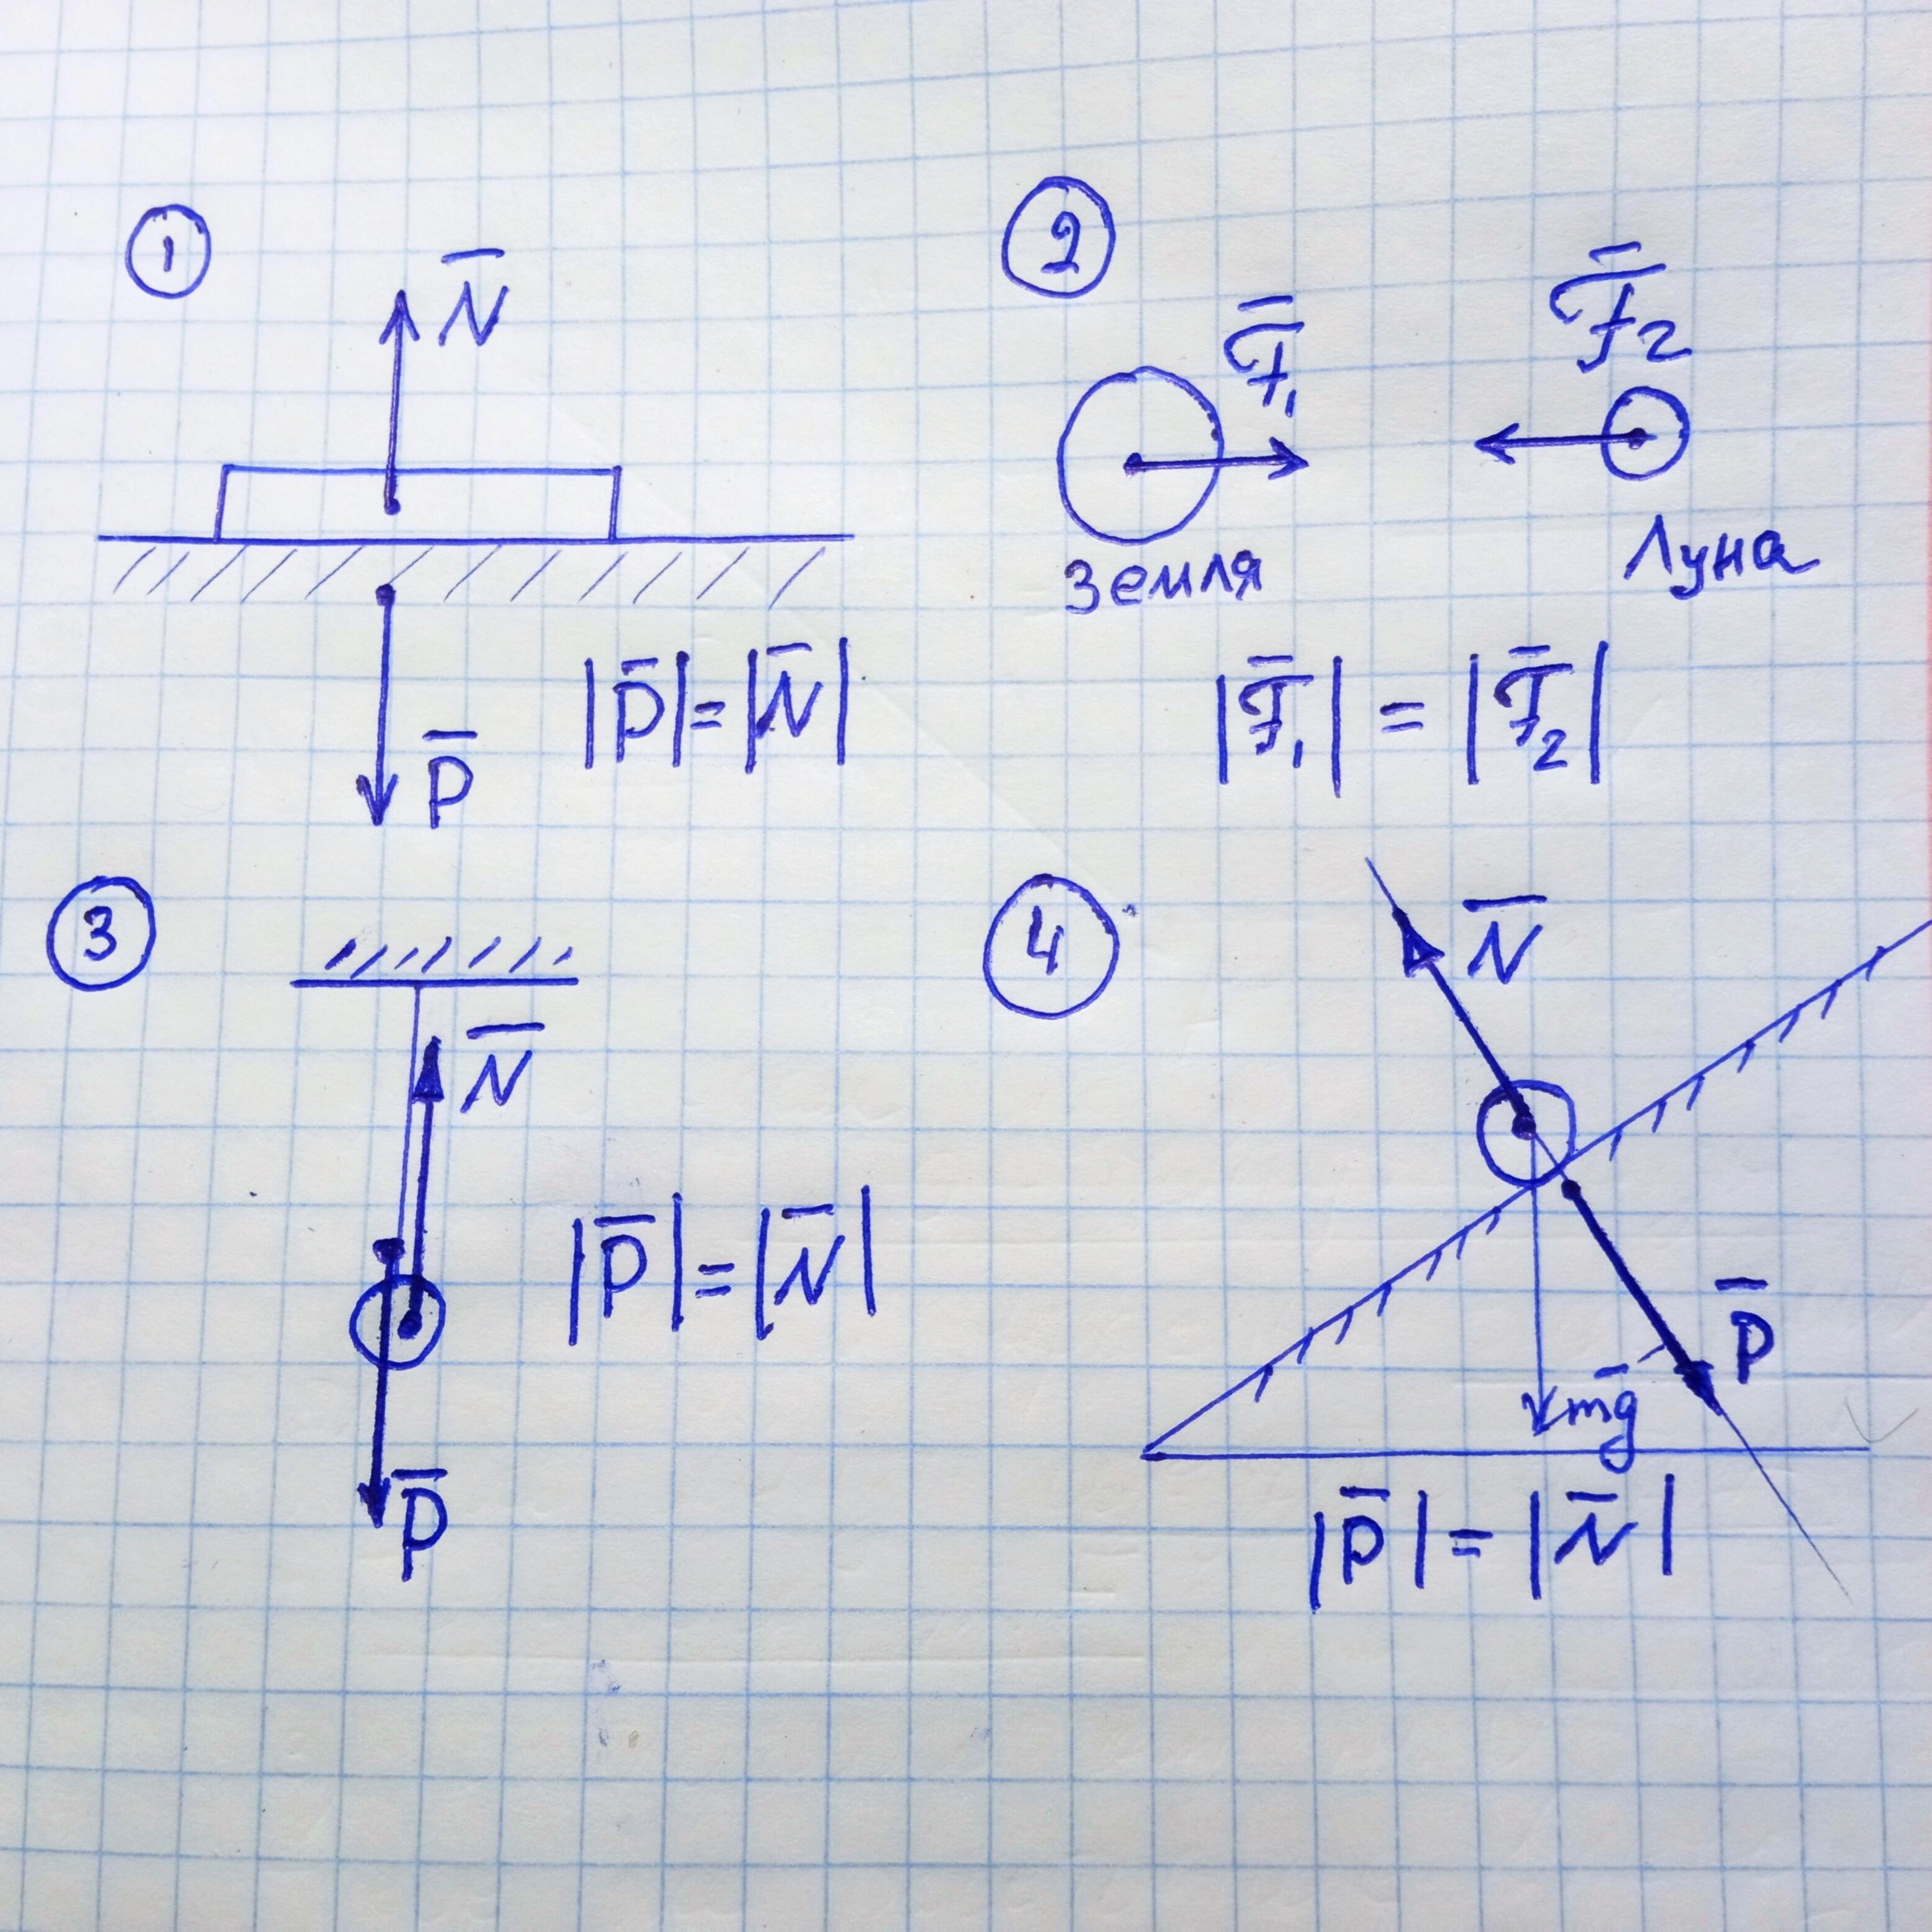 ①
N̅
P̅
|P̅| = |N̅|
②
F̅₁
F̅₂
Земля
Луна
|F̅₁| = |F̅₂|
③
N̅
P̅
|P̅| = |N̅|
④
N̅
P̅
m̅g̅
|P̅| = |N̅|